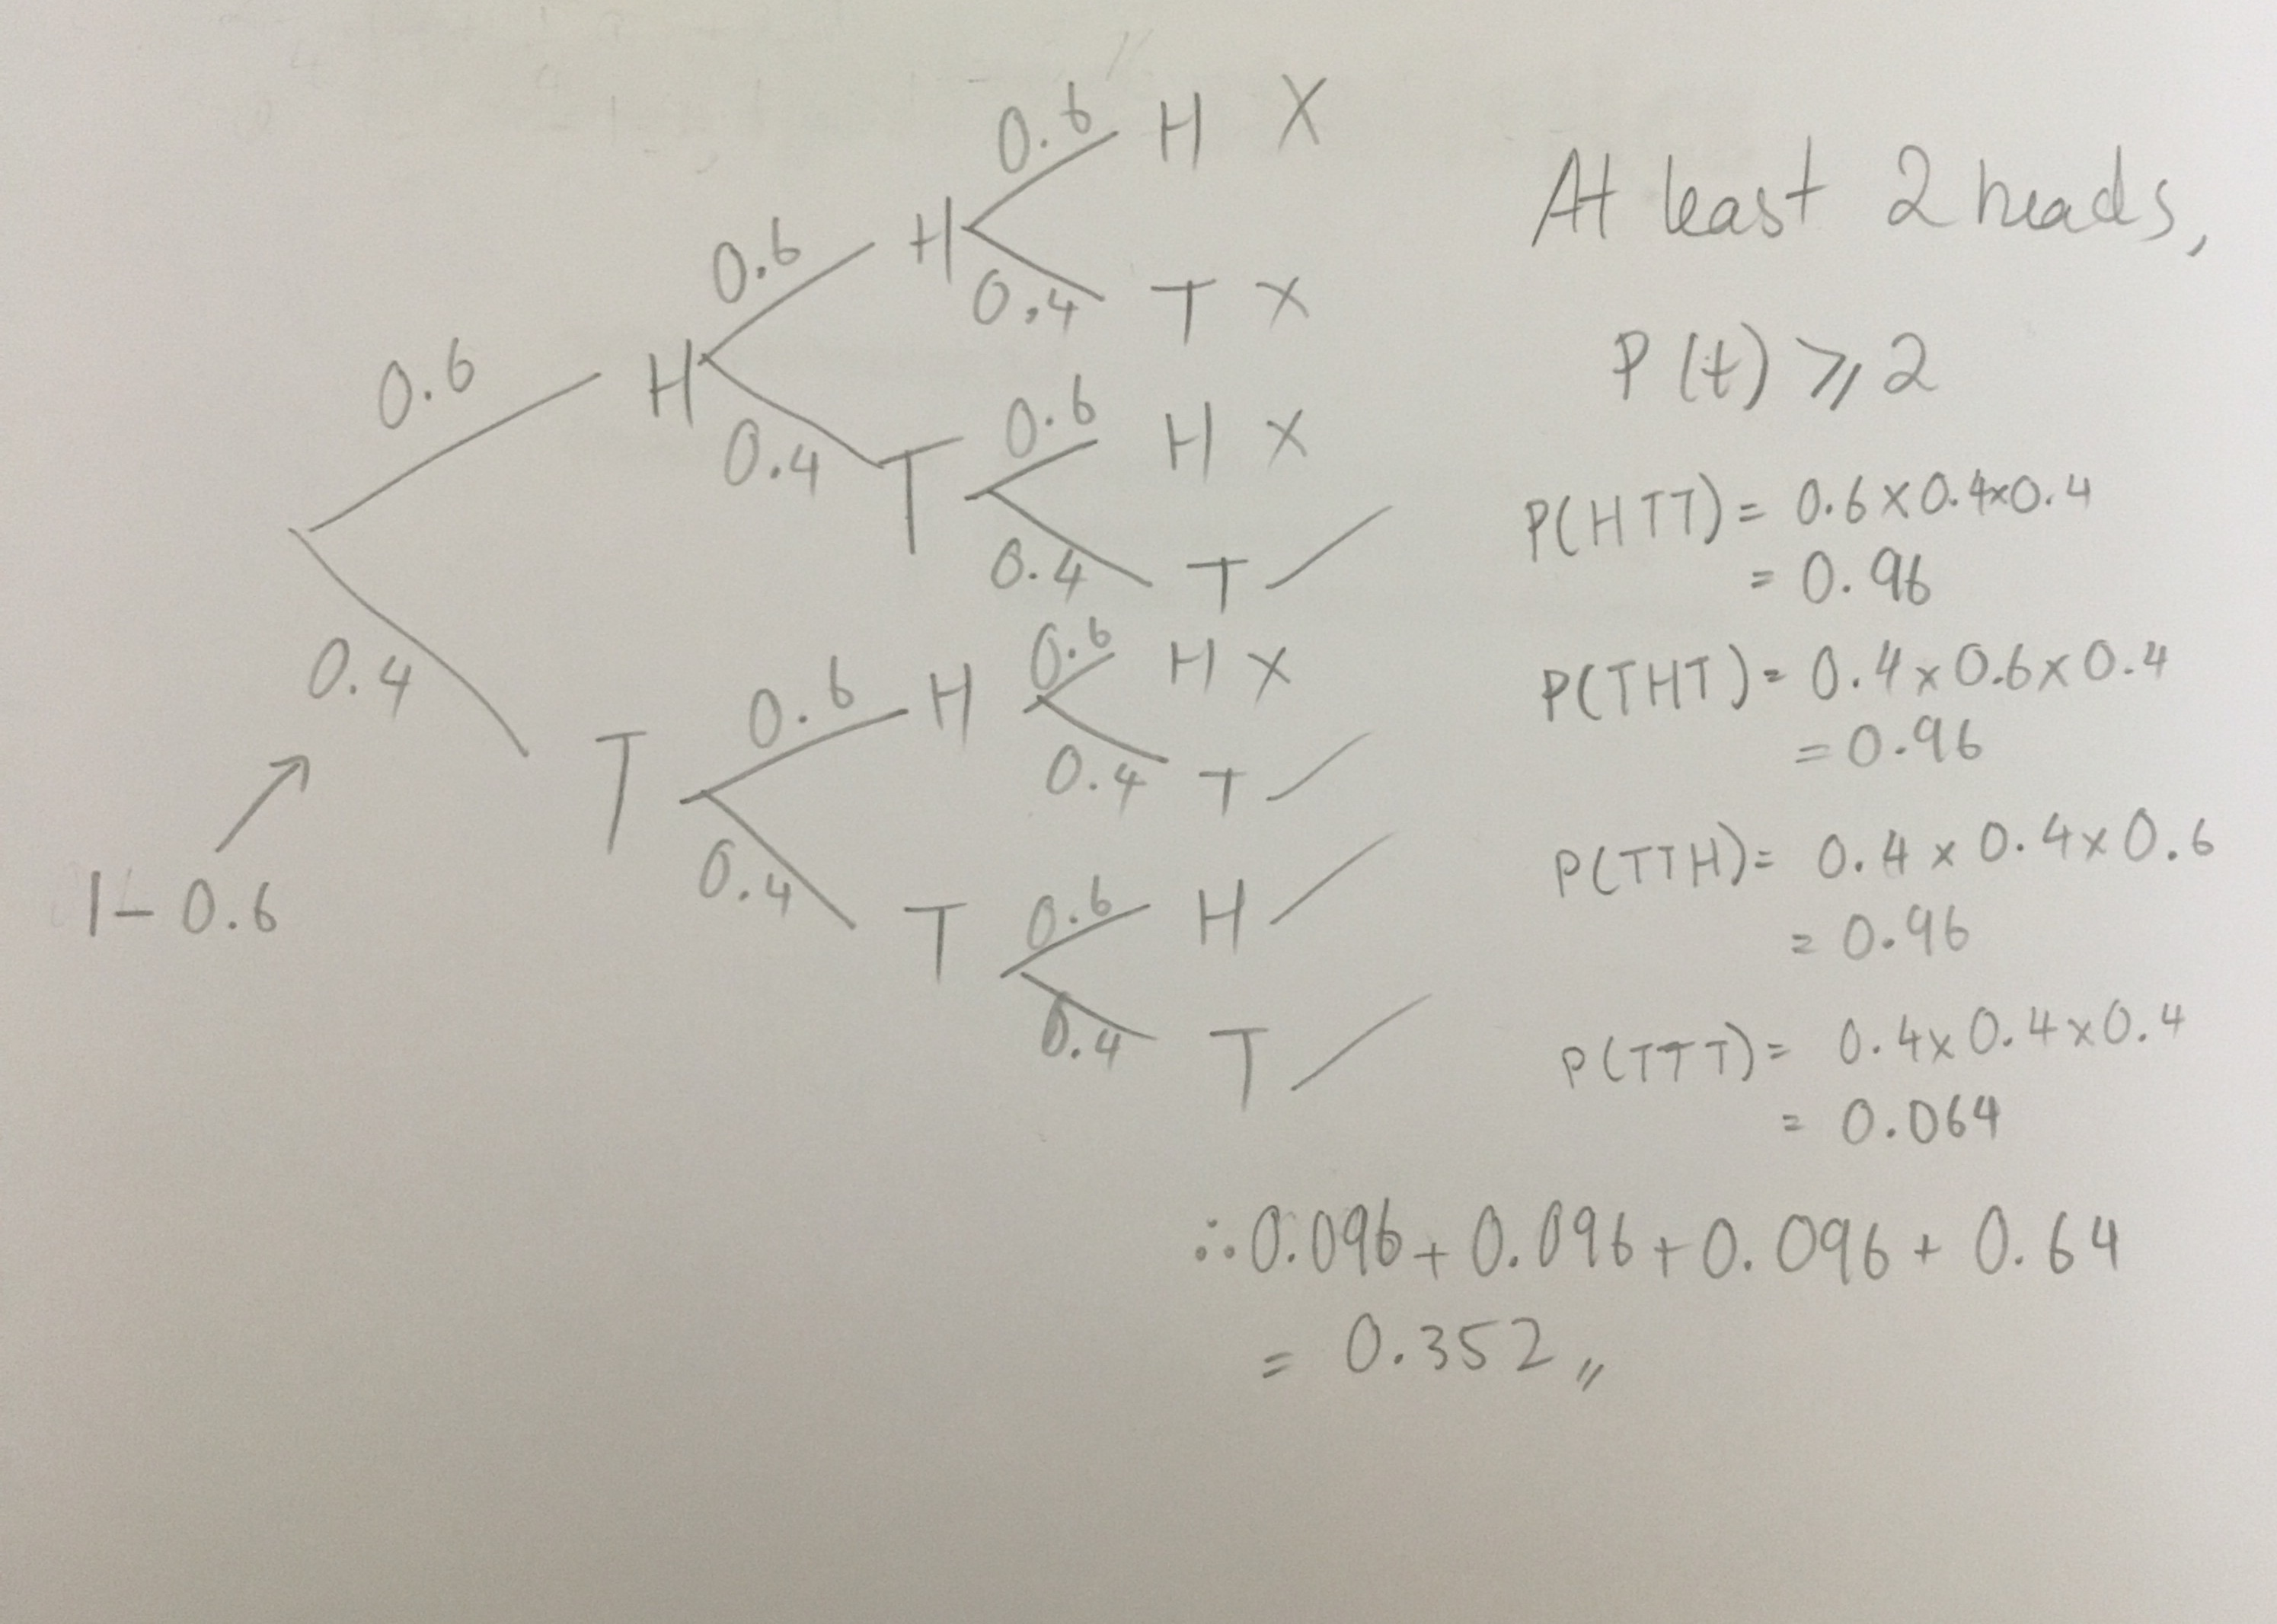 0.6 H X
0.6 H
0.4 T X
0.6 H
0.4 T
0.6 H X
0.4 T
0.4 T
1 - 0.6
0.6 H
0.6 H X
0.4 T
0.4 T
0.6 H
0.4 T
At least 2 heads,
P(t) ⩾ 2
P(HTT) = 0.6 × 0.4 × 0.4
= 0.96
P(THT) = 0.4 × 0.6 × 0.4
= 0.96
P(TTH) = 0.4 × 0.4 × 0.6
= 0.96
P(TTT) = 0.4 × 0.4 × 0.4
= 0.064
∴ 0.096 + 0.096 + 0.096 + 0.64
= 0.352